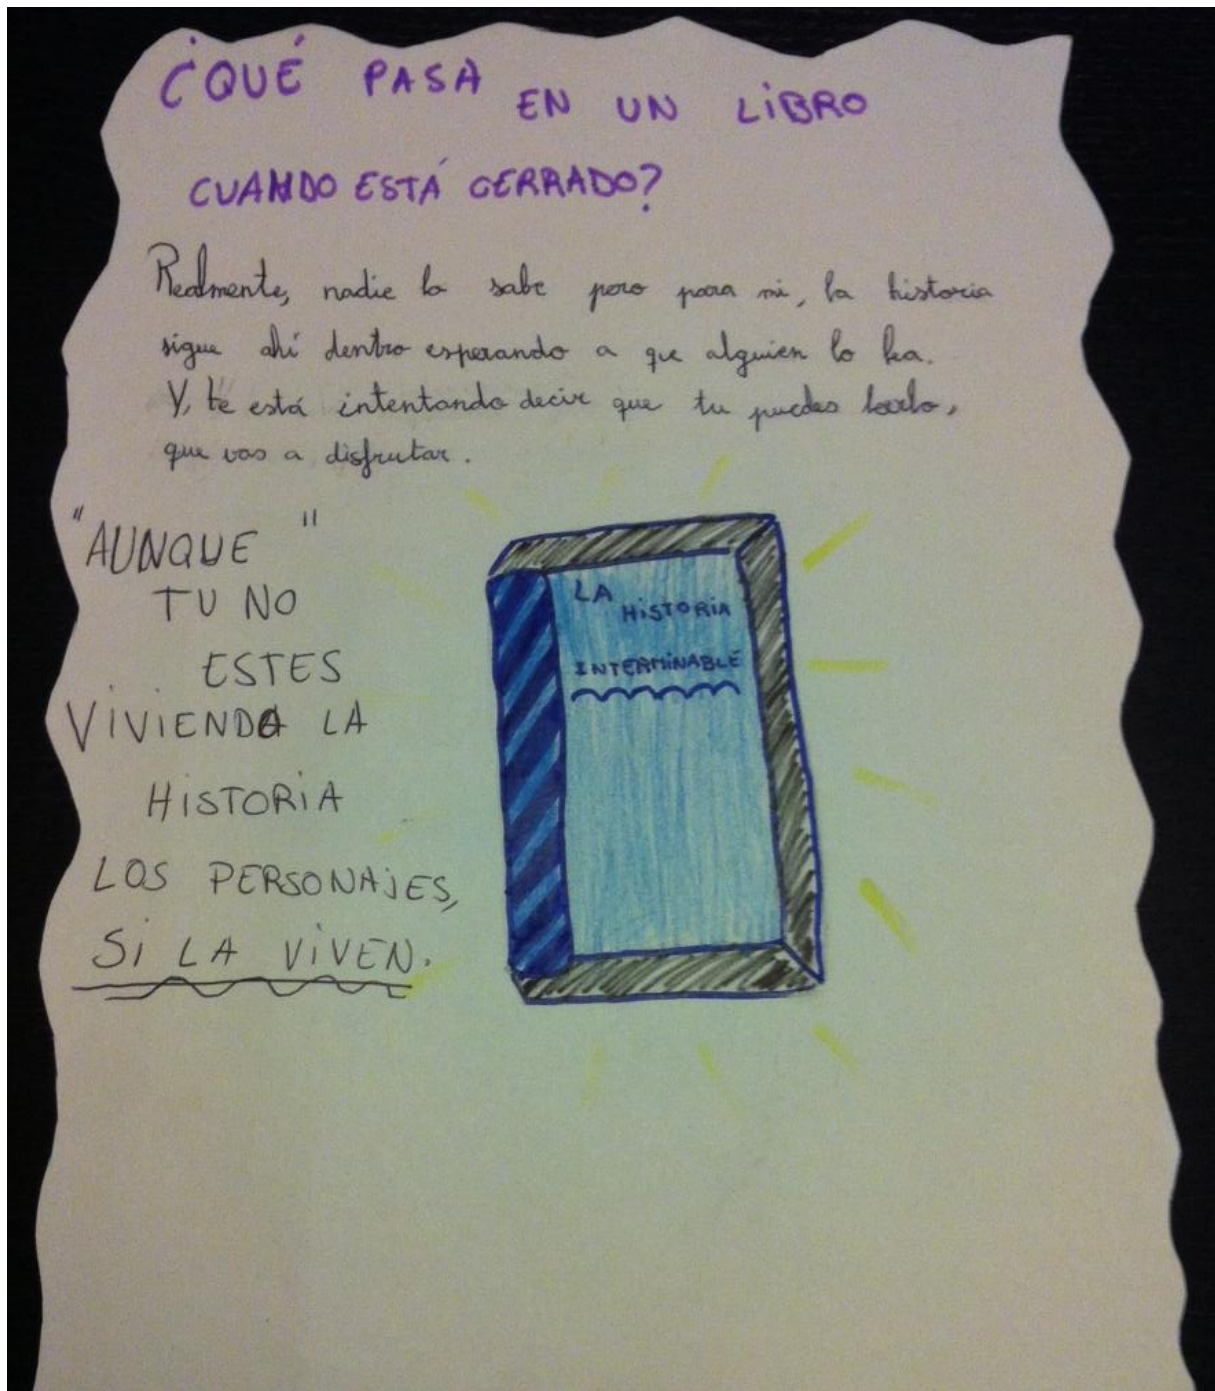 ¿QUÉ PASA EN UN LIBRO
CUANDO ESTÁ CERRADO?
Realmente, nadie lo sabe pero para mi, la historia
sigue ahí dentro esperando a que alguien lo lea.
Y, te está intentando decir que tu puedes leerlo,
que vas a disfrutar.
"AUNQUE"
TU NO
ESTES
VIVIENDO LA
HISTORIA
LOS PERSONAJES,
SI LA VIVEN.
LA
HISTORIA
INTERMINABLE